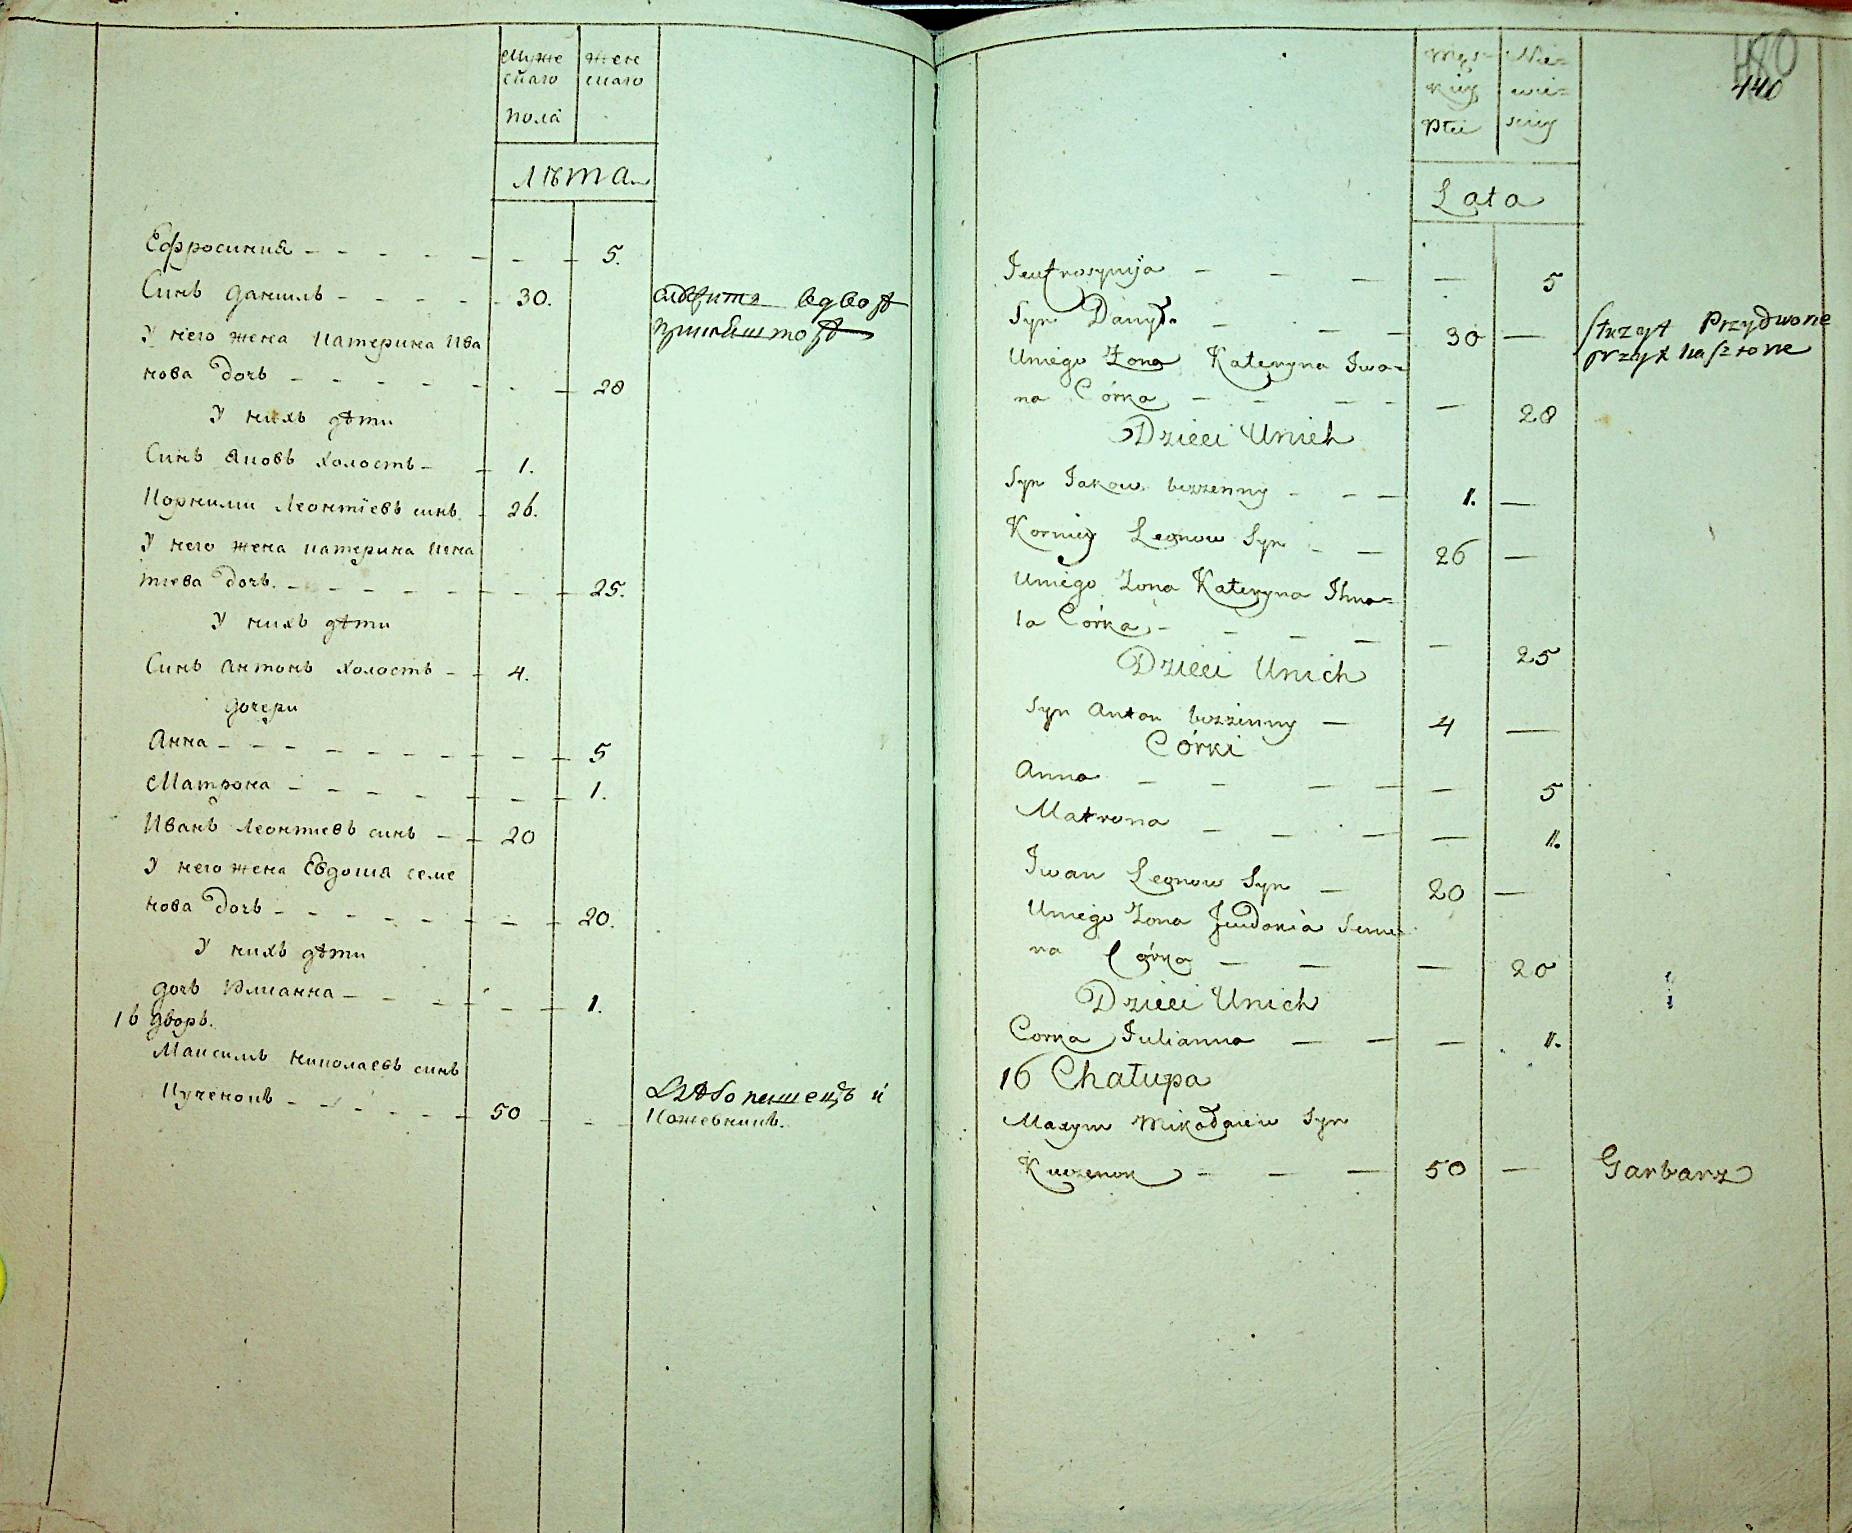 Муже
скаго
пола
Жен
скаго
лѣта
Ефросиния - - - - - - 5.
Синъ данилъ - - - - 30.
У него жена катерина Ива
нова дочь - - - - - - 28
У нихъ дѣти
Синъ Яковъ холостъ - 1.
Корнили Леонтіевъ синъ - 26.
У него жена катерина Игна
тиева дочь - - - - - - 25.
У нихъ дѣти
Синъ антонъ холостъ - - 4.
дочери
Анна - - - - - - - - 5
Матрона - - - - - - 1.
Иванъ Леонтиевъ синъ - - 20
У него жена Евдокия семе
нова дочь - - - - - - 20.
У нихъ дѣти
дочь Юлианна - - - - - 1.
16 дворъ.
Максимъ николаевъ синъ
Кученокъ - - - - - 50 - - -
Хлѣбопашецъ и
Кожевникъ.
440
Męs=
kiey
Płci
Nie=
wie=
sciey
Lata
Jeufrosynija - - - - 5
Syn Danyło - - - 30 - Służył Przydworze
Uniego Zona Kateryna Iwa=
na Córka - - - - - 28
Dzieci Unich
Syn Jakow bezzenny - - - 1. -
Korniey Leonow Syn - - 26 -
Uniego Zona Kateryna Ihna=
ta Córka - - - - - 25
Dzieci Unich
Syn Anton bezzenny - 4 -
Córki
Anna - - - - - 5
Matrona - - - - 1.
Iwan Leonow Syn - 20 -
Uniego Zona Jeudokia Seme=
na Córka - - - 20
Dzieci Unich
Corka Julianna - - - 1.
16 Chałupa
Maxym Mikołaiew Syn
Kuczenok - - - 50 - Garbarz